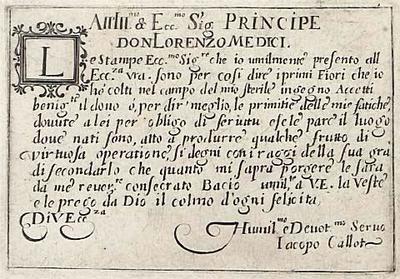 All Ill.mo & Ecc.mo Sig. PRINCIPE
DON LORENZO MEDICI.
Le Stampe Ecc.mo Sig.re che io umilmente presento all
Ecc.za vra. sono per cosi dire i primi Fiori che io
hò colti nel campo del mio sterile ingegno Accetti
benig.te il dono ò, per dir meglio, le primitie delle mie fatiche,
dovute a lei per obligo di seruitu esele pare il luogo
dove nati sono, atto à produrre qualche frutto di
virtuosa operatione, si degni con i raggi della sua gra
di secondarlo che quanto mi sapra porgere le sara
da me reuer.te consecrato Bacio umil.te a V.E. la veste
e le prego da Dio il colmo d'ogni felicita,
Di V. Ecc.za
Humil.mo e Devot.mo Servo
Iacopo Callot